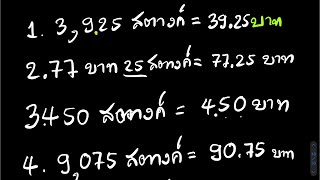 1. 3,925 สตางค์ = 39.25 บาท
2. 77 บาท 25 สตางค์ = 77.25 บาท
3. 450 สตางค์ = 4.50 บาท
4. 9,075 สตางค์ = 90.75 บาท